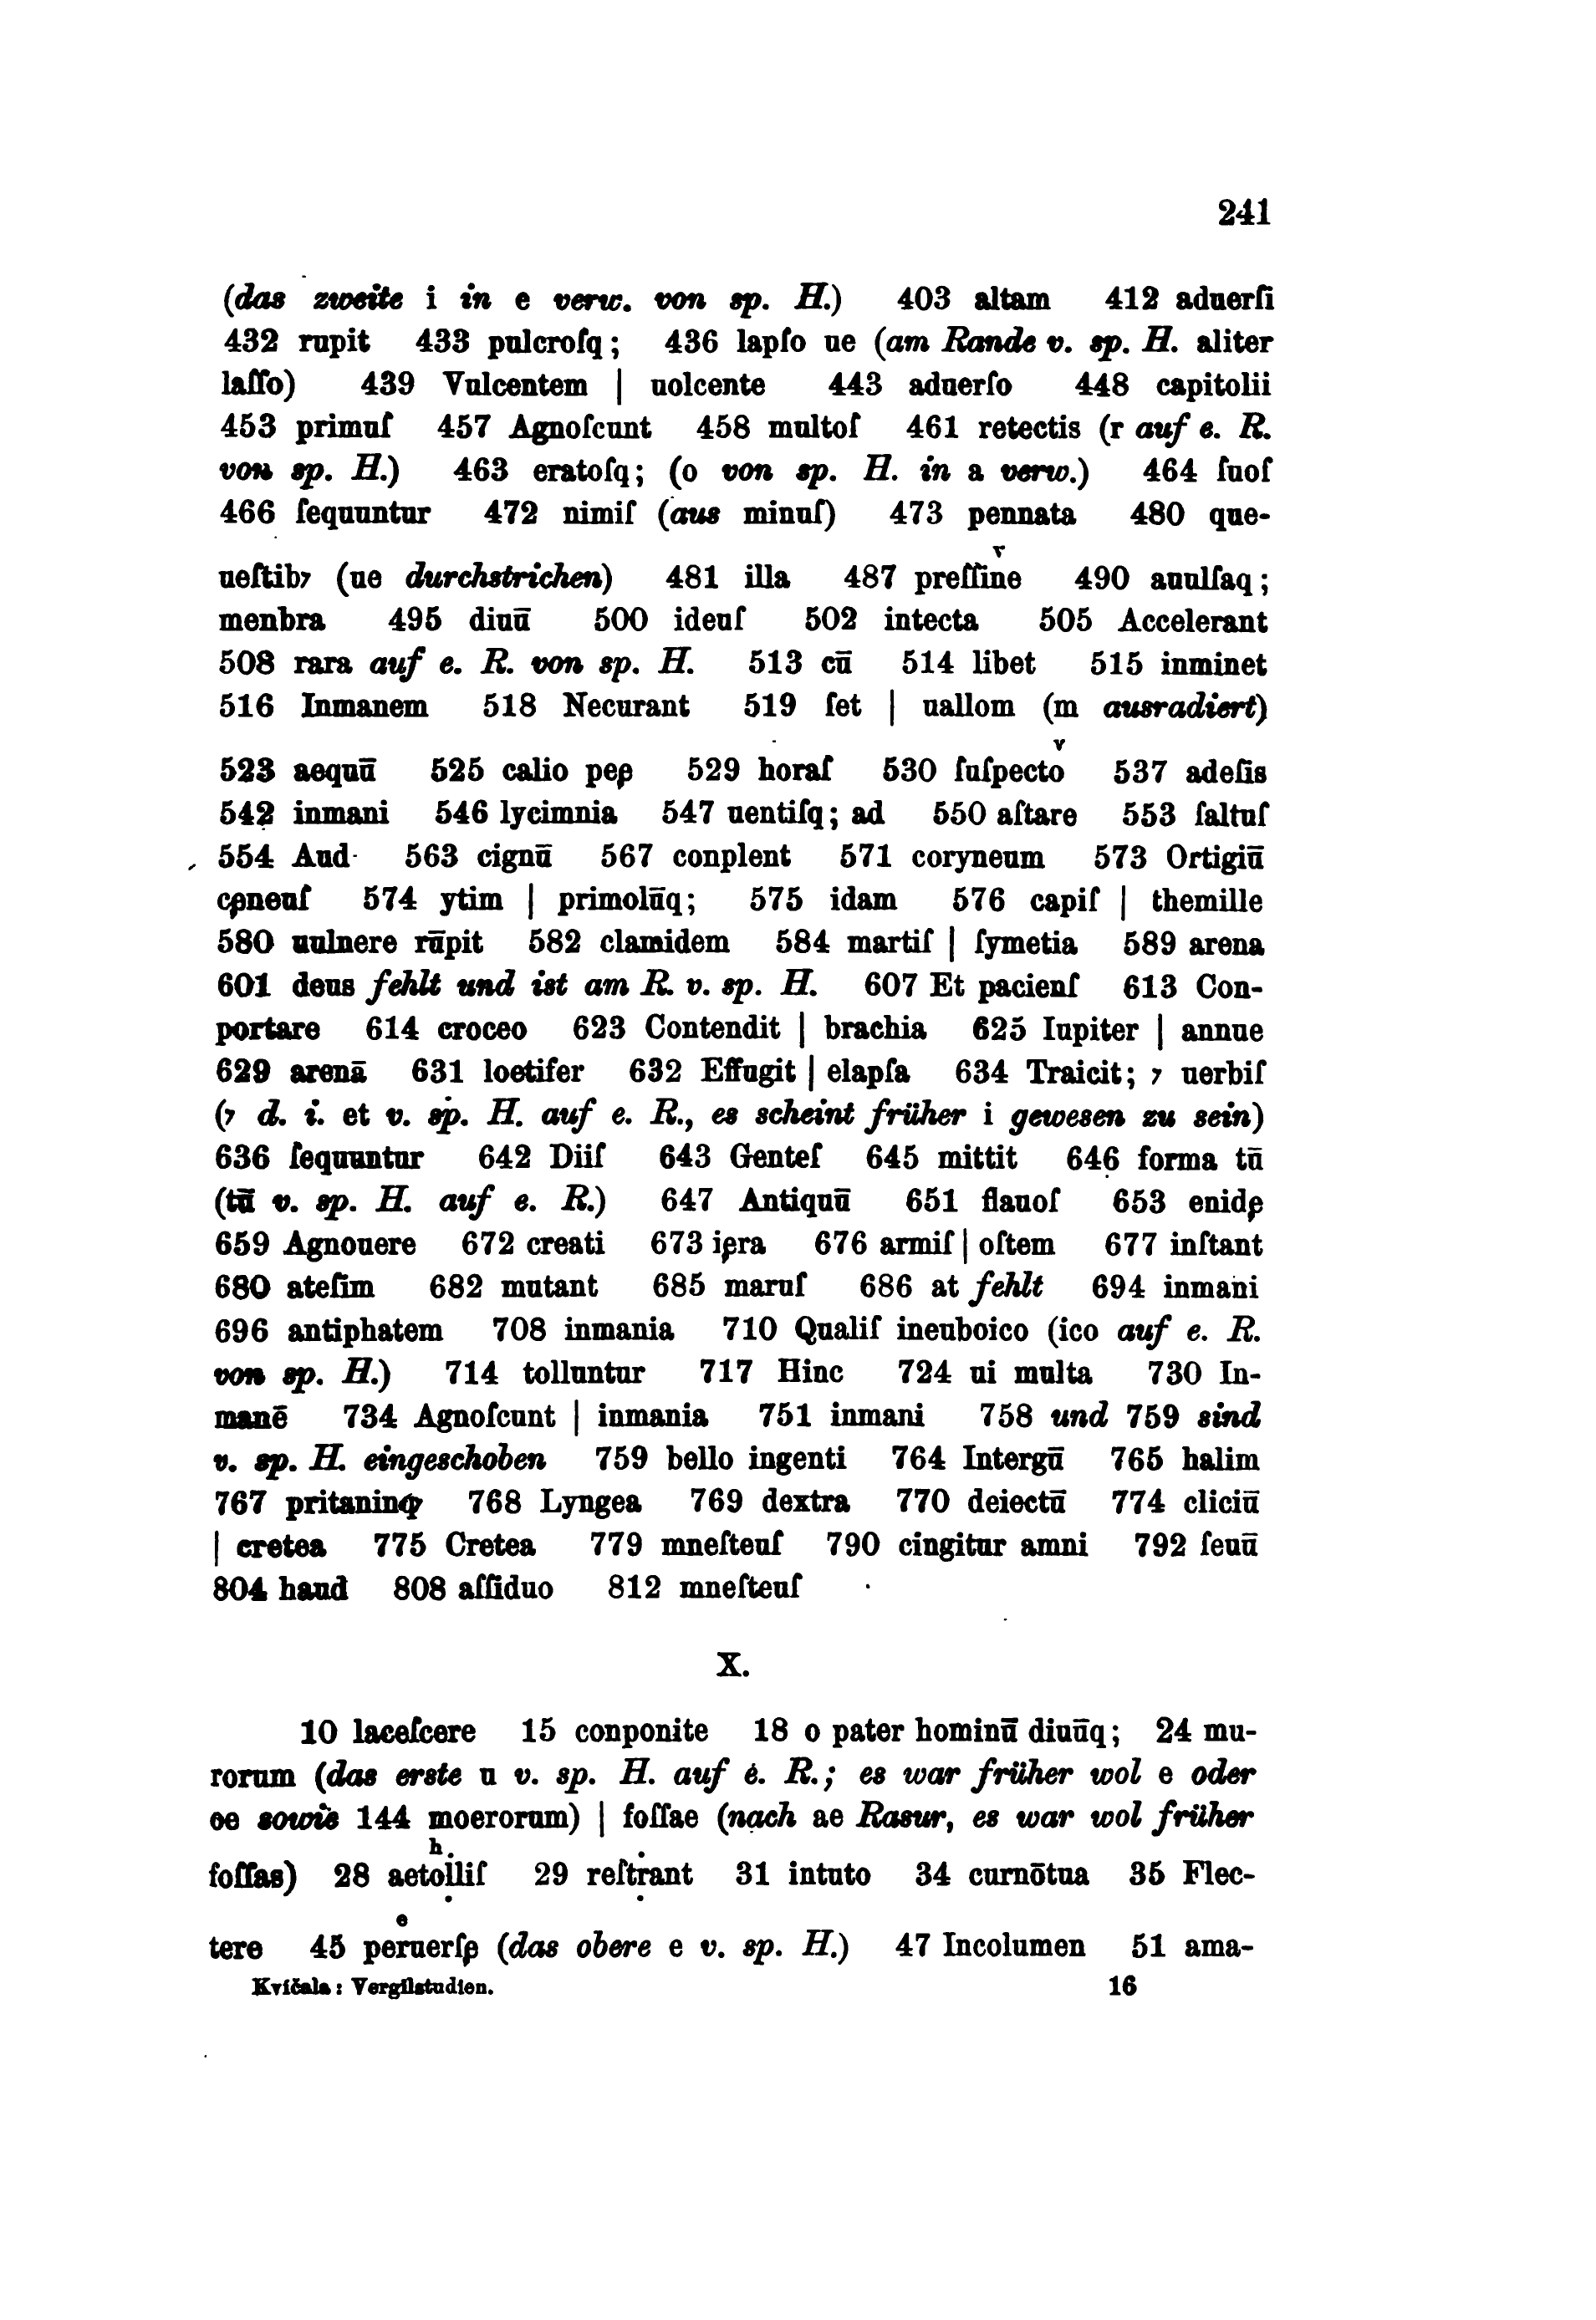 241
(das zweite i in e verw. von sp. H.) 403 altam 412 aduerſi
432 rupit 433 pulcroſq; 436 lapſo ue (am Rande v. sp. H. aliter
laſſo) 439 Vulcentem | uolcente 443 aduerſo 448 capitolii
453 primuſ 457 Agnoſcunt 458 multoſ 461 retectis (r auf e. R.
von sp. H.) 463 eratoſq; (o von sp. H. in a verw.) 464 ſuoſ
466 ſequuntur 472 nimiſ (aus minuſ) 473 pennata 480 que-
v
ueſtib⁊ (ue durchstrichen) 481 illa 487 preſſine 490 auulſaq;
menbra 495 diuū 500 ideuſ 502 intecta 505 Accelerant
508 rara auf e. R. von sp. H. 513 cū 514 libet 515 inminet
516 Inmanem 518 Necurant 519 ſet | uallom (m ausradiert)
v
523 aequū 525 calio peę 529 horaſ 530 ſuſpecto 537 adeſis
542 inmani 546 lycimnia 547 uentiſq; ad 550 aſtare 553 ſaltuſ
554 Aud 563 cignū 567 conplent 571 coryneum 573 Ortigiū
cęneuſ 574 ytim | primolūq; 575 idam 576 capiſ | themille
580 uulnere rūpit 582 clamidem 584 martiſ | ſymetia 589 arena
601 deus fehlt und ist am R. v. sp. H. 607 Et pacienſ 613 Con-
portare 614 croceo 623 Contendit | brachia 625 Iupiter | annue
629 arenā 631 loetifer 632 Effugit | elapſa 634 Traicit; ⁊ uerbiſ
(⁊ d. i. et v. sp. H. auf e. R., es scheint früher i gewesen zu sein)
636 ſequuntur 642 Diiſ 643 Genteſ 645 mittit 646 forma tū
(tū v. sp. H. auf e. R.) 647 Antiquū 651 flauoſ 653 enidę
659 Agnouere 672 creati 673 ięra 676 armiſ | oſtem 677 inſtant
680 ateſim 682 mutant 685 maruſ 686 at fehlt 694 inmani
696 antiphatem 708 inmania 710 Qualiſ ineuboico (ico auf e. R.
von sp. H.) 714 tolluntur 717 Hinc 724 ui multa 730 In-
manē 734 Agnoſcunt | inmania 751 inmani 758 und 759 sind
v. sp. H. eingeschoben 759 bello ingenti 764 Intergū 765 halim
767 768 Lyngea 769 dextra 770 deiectū 774 cliciū
| cretea 775 Cretea 779 mneſteuſ 790 cingitur amni 792 ſeuū
804 haud 808 aſſiduo 812 mneſteuſ
X.
10 laceſcere 15 conponite 18 o pater hominū diuūq; 24 mu-
rorum (das erste u v. sp. H. auf e. R.; es war früher wol e oder
oe sowie 144 moerorum) | foſſae (nach ae Rasur, es war wol früher
h
foſſas) 28 aetolliſ 29 reſtrant 31 intuto 34 curnōtua 35 Flec-
e
tere 45 peruerſę (das obere e v. sp. H.) 47 Incolumen 51 ama-
Kvíčala: Vergilstudien. 16